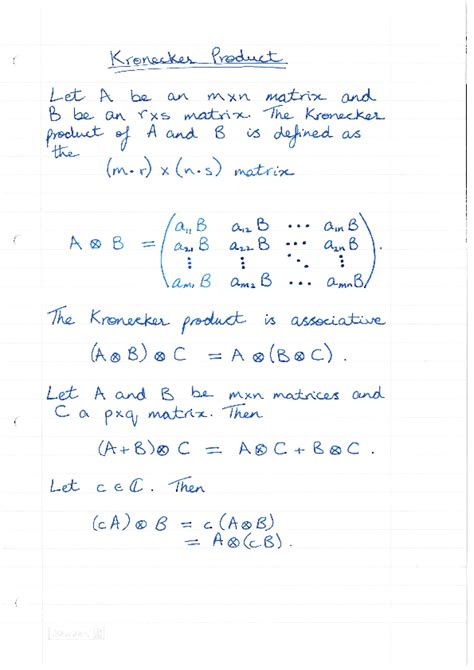 Kronecker Product
Let A be an m×n matrix and
B be an r×s matrix. The Kronecker
product of A and B is defined as
the
(m·r) × (n·s) matrix
A ⊗ B = ( a₁₁B a₁₂B ··· a₁ₙB
a₂₁B a₂₂B ··· a₂ₙB
⋮ ⋮ ⋱ ⋮
aₘ₁B aₘ₂B ··· aₘₙB ).
The Kronecker product is associative
(A⊗B)⊗C = A⊗(B⊗C).
Let A and B be m×n matrices and
C a p×q matrix. Then
(A+B)⊗C = A⊗C + B⊗C.
Let c ∈ ℂ. Then
(cA)⊗B = c(A⊗B)
= A⊗(cB).